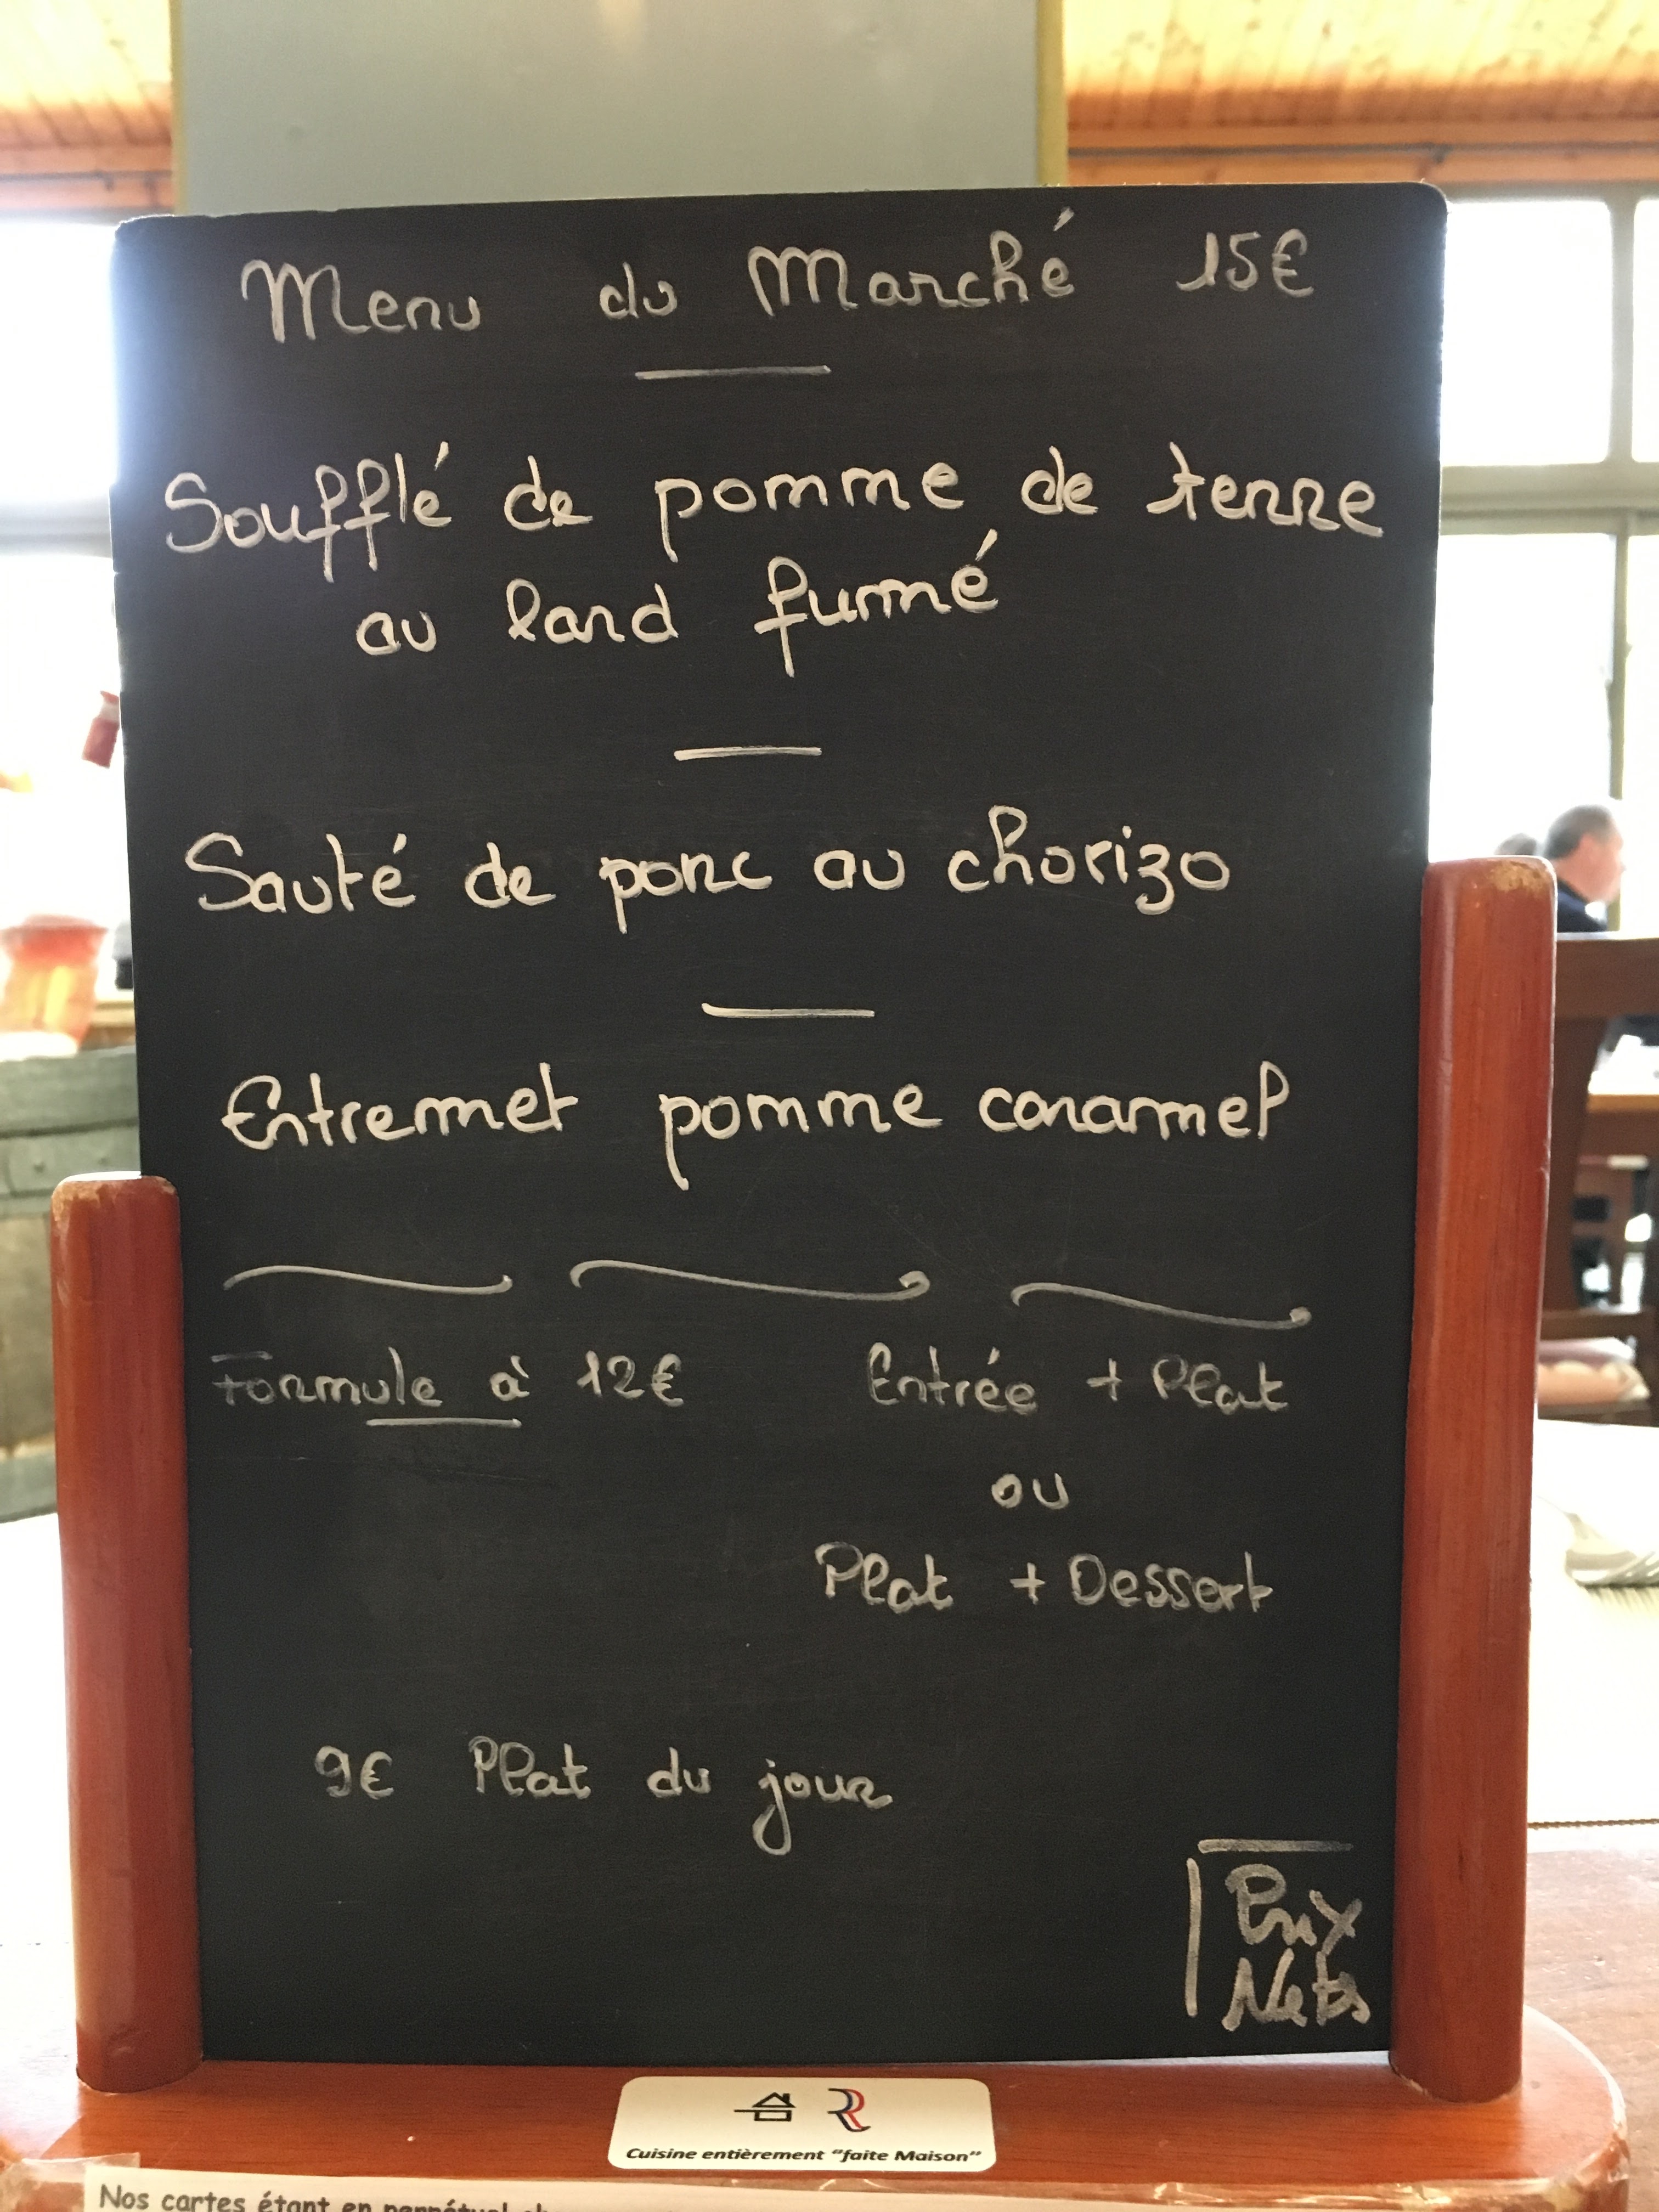 Menu du Marché 15€
Soufflé de pomme de terre
au lard fumé
Sauté de porc au chorizo
Entremet pomme caramel
Formule à 12€ Entrée + Plat
ou
Plat + Dessert
9€ Plat du jour
Prix
Nets
Cuisine entièrement "faite Maison"
Nos cartes étant en perpétuel